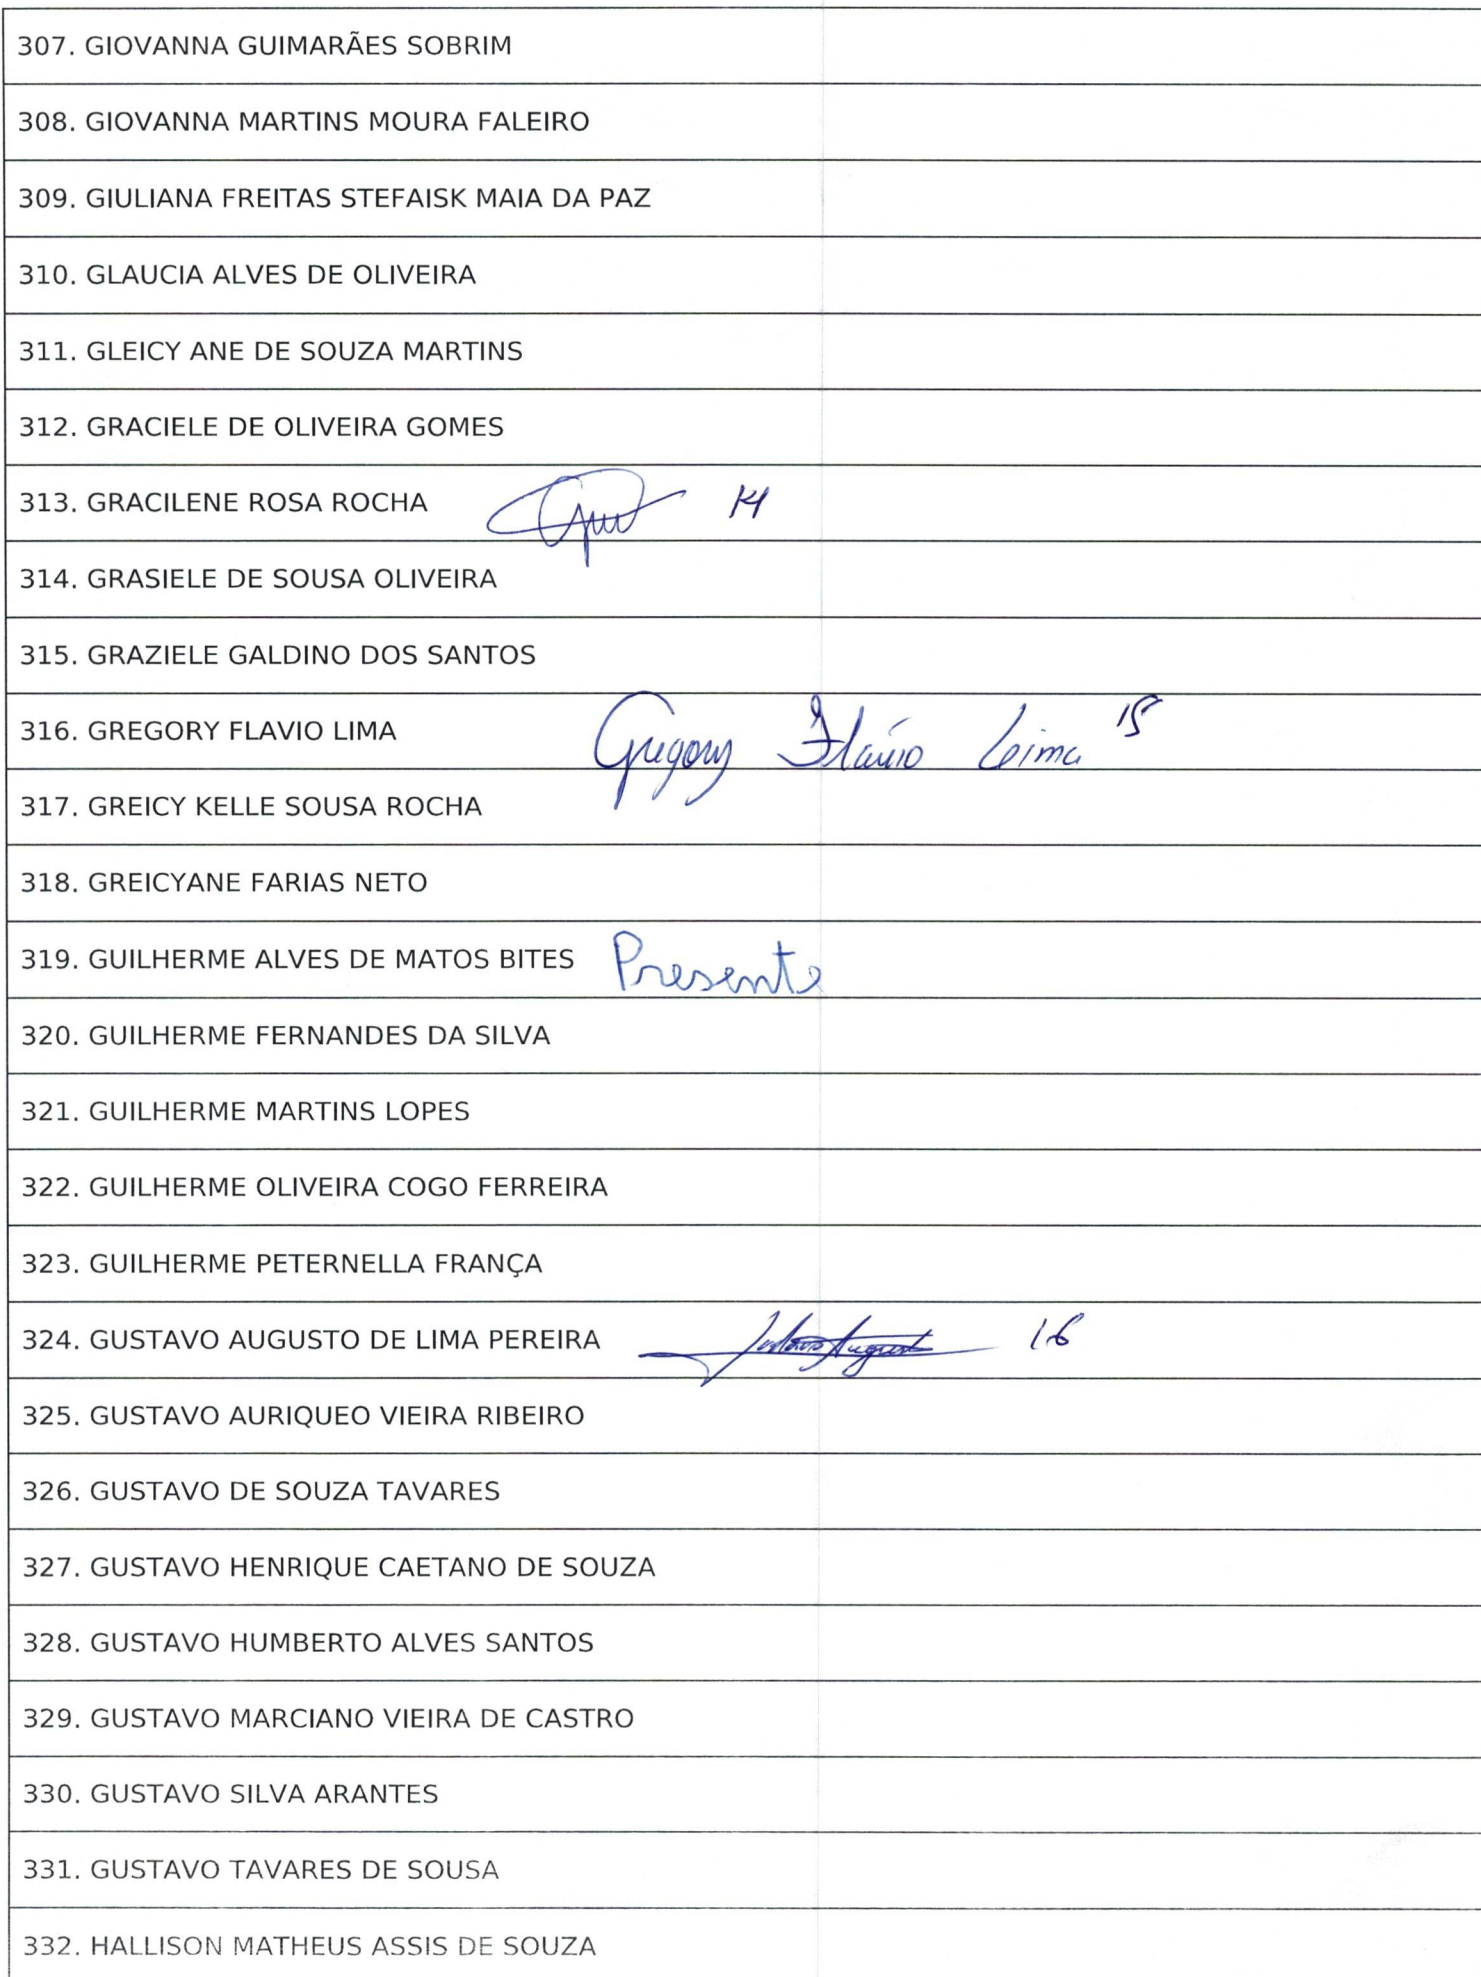 307. GIOVANNA GUIMARÃES SOBRIM
308. GIOVANNA MARTINS MOURA FALEIRO
309. GIULIANA FREITAS STEFAISK MAIA DA PAZ
310. GLAUCIA ALVES DE OLIVEIRA
311. GLEICY ANE DE SOUZA MARTINS
312. GRACIELE DE OLIVEIRA GOMES
313. GRACILENE ROSA ROCHA 14
314. GRASIELE DE SOUSA OLIVEIRA
315. GRAZIELE GALDINO DOS SANTOS
316. GREGORY FLAVIO LIMA Gregory Flávio Lima 15
317. GREICY KELLE SOUSA ROCHA
318. GREICYANE FARIAS NETO
319. GUILHERME ALVES DE MATOS BITES Presente
320. GUILHERME FERNANDES DA SILVA
321. GUILHERME MARTINS LOPES
322. GUILHERME OLIVEIRA COGO FERREIRA
323. GUILHERME PETERNELLA FRANÇA
324. GUSTAVO AUGUSTO DE LIMA PEREIRA Gustavo Augusto 16
325. GUSTAVO AURIQUEO VIEIRA RIBEIRO
326. GUSTAVO DE SOUZA TAVARES
327. GUSTAVO HENRIQUE CAETANO DE SOUZA
328. GUSTAVO HUMBERTO ALVES SANTOS
329. GUSTAVO MARCIANO VIEIRA DE CASTRO
330. GUSTAVO SILVA ARANTES
331. GUSTAVO TAVARES DE SOUSA
332. HALLISON MATHEUS ASSIS DE SOUZA